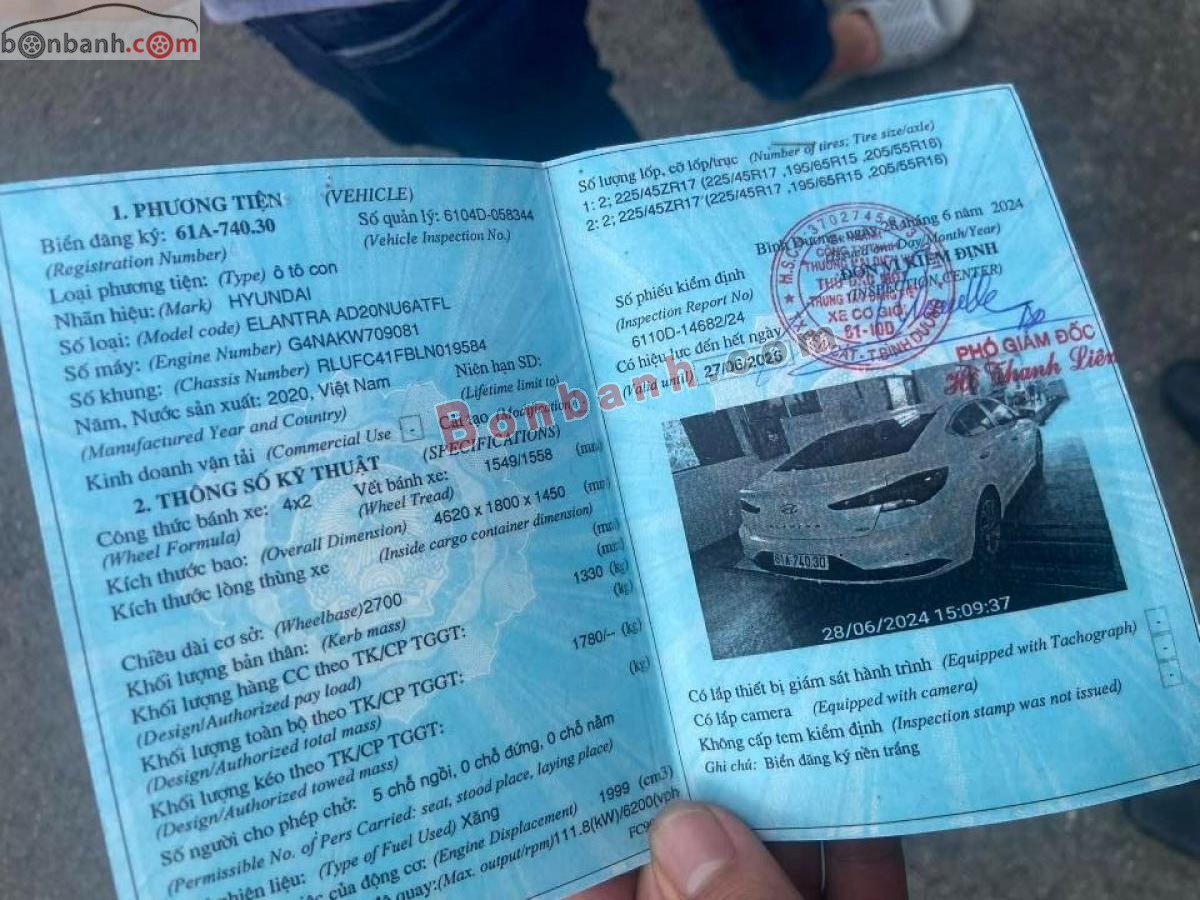 bonbanh.com
1. PHƯƠNG TIỆN (VEHICLE)
Biển đăng ký: 61A-740.30 Số quản lý: 6104D-058344
(Registration Number) (Vehicle Inspection No.)
Loại phương tiện: (Type) ô tô con
Nhãn hiệu: (Mark) HYUNDAI
Số loại: (Model code) ELANTRA AD20NU6ATFL
Số máy: (Engine Number) G4NAKW709081
Số khung: (Chassis Number) RLUFC41FBLN019584
Năm, Nước sản xuất: 2020, Việt Nam Niên hạn SD:
(Manufactured Year and Country) (Lifetime limit to)
Kinh doanh vận tải (Commercial Use - Cải tạo (Modification)
2. THÔNG SỐ KỸ THUẬT (SPECIFICATIONS)
Công thức bánh xe: 4x2 Vết bánh xe: 1549/1558
(Wheel Formula) (Wheel Tread)
Kích thước bao: (Overall Dimension) 4620 x 1800 x 1450
Kích thước lòng thùng xe (Inside cargo container dimension)
Chiều dài cơ sở: (Wheelbase)2700
Khối lượng bản thân: (Kerb mass) 1330 (kg)
Khối lượng hàng CC theo TK/CP TGGT: (kg)
(Design/Authorized pay load)
Khối lượng toàn bộ theo TK/CP TGGT: 1780/-- (kg)
(Design/Authorized total mass)
Khối lượng kéo theo TK/CP TGGT: (kg)
(Design/Authorized towed mass)
Số người cho phép chở: 5 chỗ ngồi, 0 chỗ đứng, 0 chỗ nằm
(Permissible No. of Pers Carried: seat, stood place, laying place)
nhiên liệu: (Type of Fuel Used) Xăng
của động cơ: (Engine Displacement) 1999 (cm3)
quay:(Max. output/rpm)111.8(kW)/6200(vph
Số lượng lốp, cỡ lốp/trục (Number of tires: Tire size/axle)
1: 2; 225/45ZR17 (225/45R17 ,195/65R15 ,205/55R16)
2: 2; 225/45ZR17 (225/45R17 ,195/65R15 ,205/55R16)
Bình Dương, ngày 28 tháng 6 năm 2024
(Issued on Day/Month/Year)
Số phiếu kiểm định ĐƠN VỊ KIỂM ĐỊNH
(Inspection Report No) (INSPECTION CENTER)
6110D-14682/24
Có hiệu lực đến hết ngày
(Valid until) 27/06/2026
XE CƠ GIỚI
61-10D
PHÓ GIÁM ĐỐC
Hồ Thanh Liên
Bonbanh.com
61A-740.30
28/06/2024 15:09:37
Có lắp thiết bị giám sát hành trình (Equipped with Tachograph) -
Có lắp camera (Equipped with camera) -
Không cấp tem kiểm định (Inspection stamp was not issued) -
Ghi chú: Biển đăng ký nền trắng